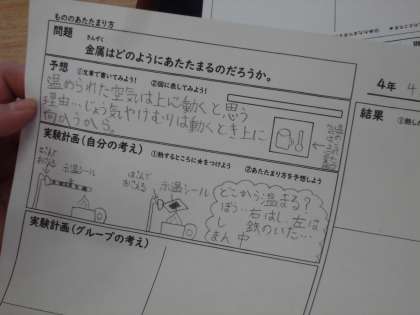 もののあたたまり方
問題
きんぞく
金属はどのようにあたたまるのだろうか。
予想 ①文章で書いてみよう! ②図に表してみよう!
温められた空気は上に動くと思う
理由…じょう気やけむりは動くとき上に
向かうから。
実験計画(自分の考え) ①熱するところに★をつけよう ②あたたまり方を予想しよう
示温シール
示温シール
どこから温まる?
ぼう…右はし、左は
し 鉄のいた…
まん中
実験計画(グループの考え)
4年
結果